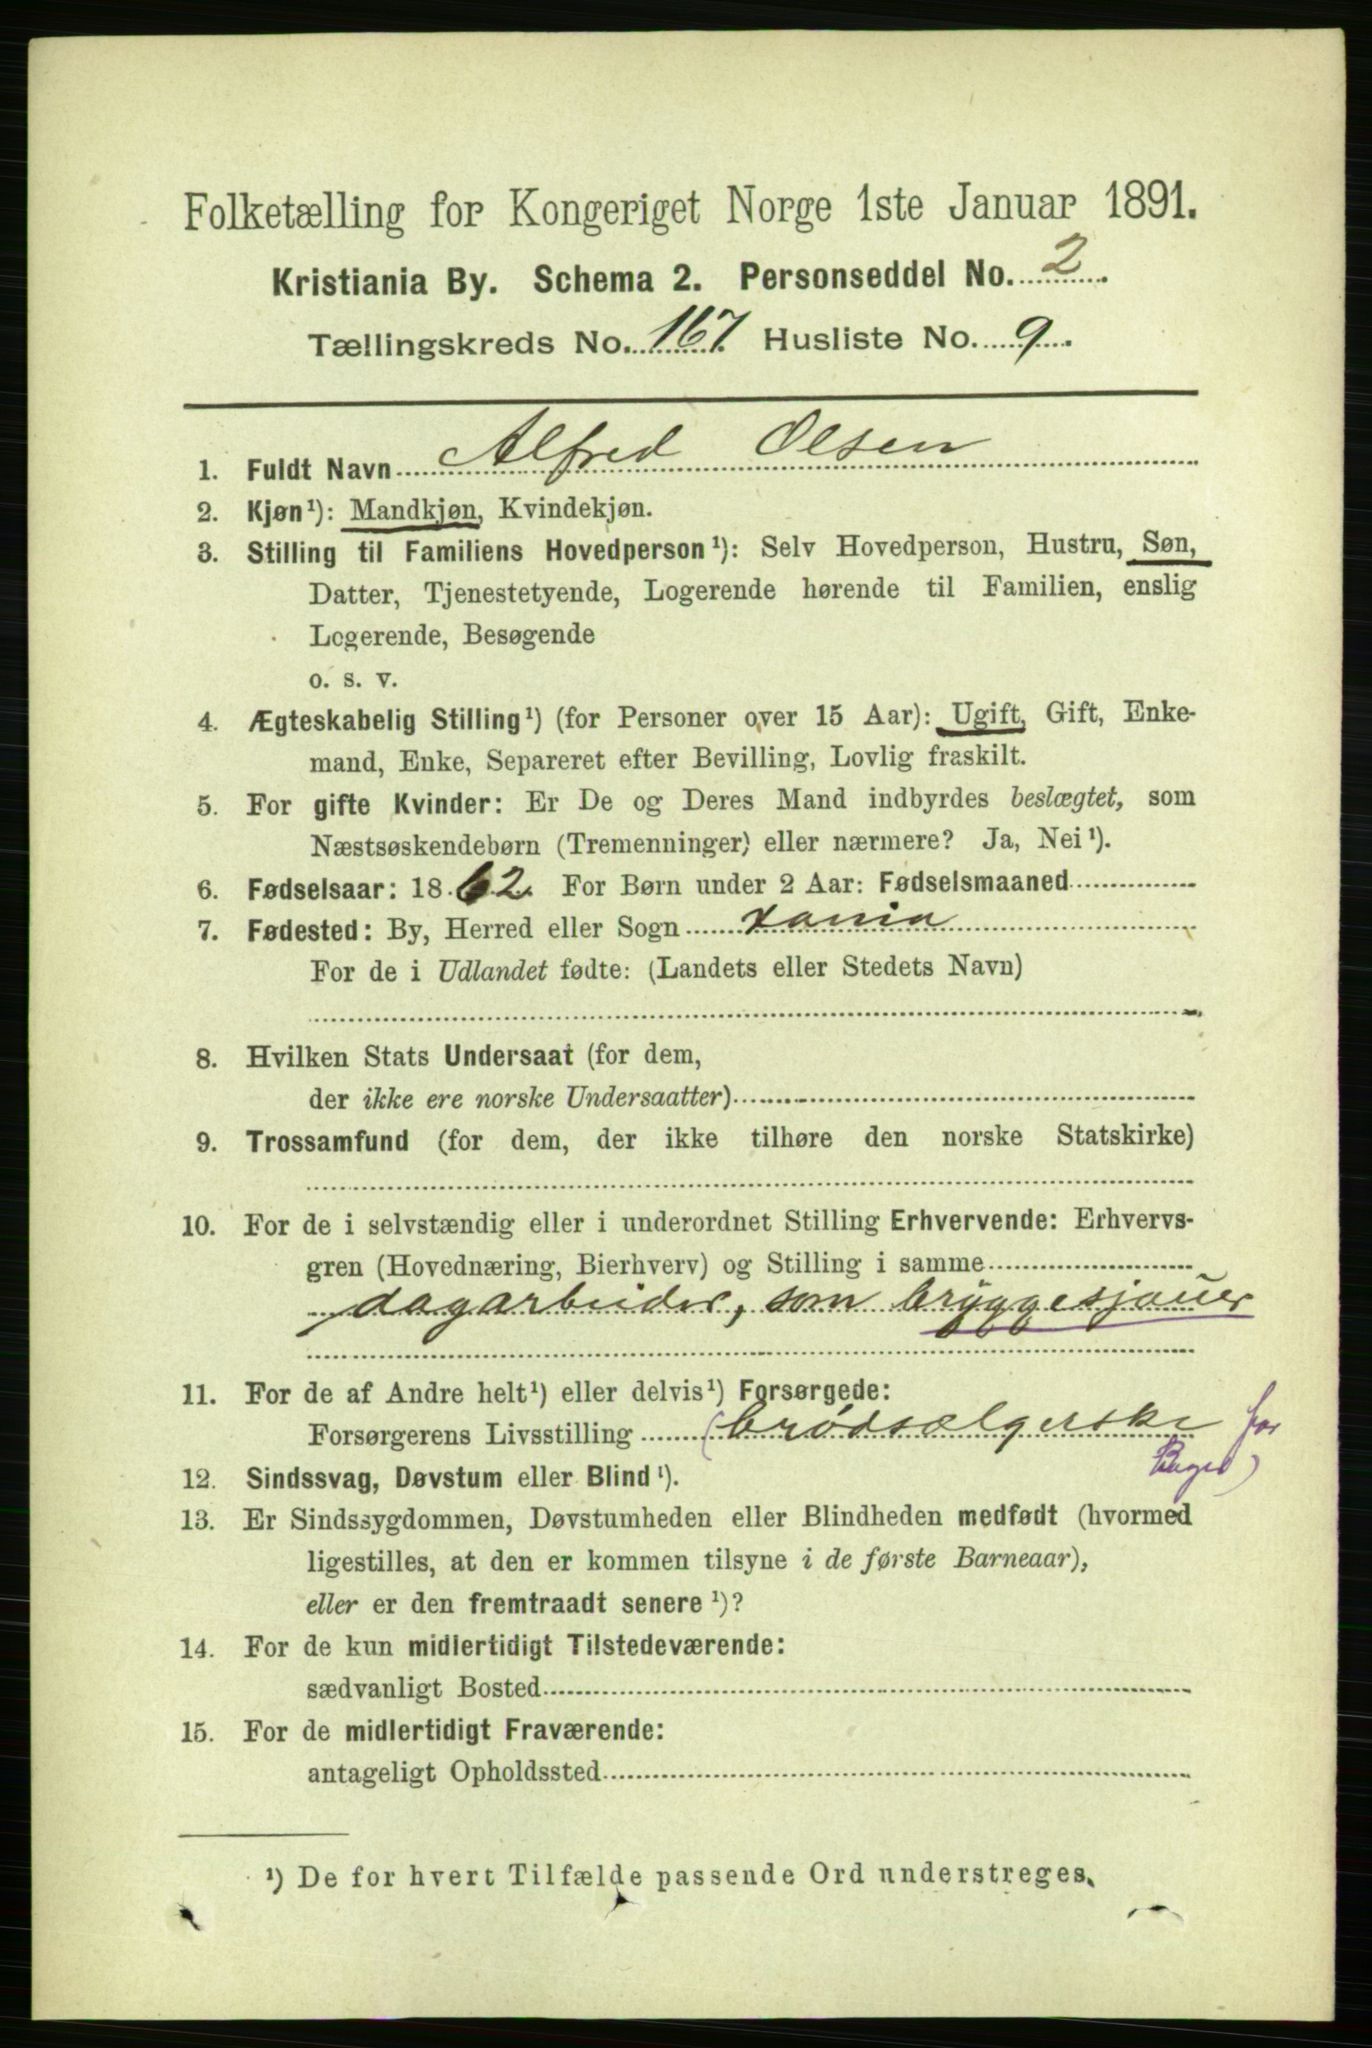 Folketælling for Kongeriget Norge 1ste Januar 1891.
Kristiania By. Schema 2. Personseddel No. 2.
Tællingskreds No. 167. Husliste No. 9.
1. Fuldt Navn Alfred Olsen
2. Kjøn¹): Mandkjøn, Kvindekjøn.
3. Stilling til Familiens Hovedperson¹): Selv Hovedperson, Hustru, Søn,
Datter, Tjenestetyende, Logerende hørende til Familien, enslig
Logerende, Besøgende
o. s. v.
4. Ægteskabelig Stilling¹) (for Personer over 15 Aar): Ugift, Gift, Enke-
mand, Enke, Separeret efter Bevilling, Lovlig fraskilt.
5. For gifte Kvinder: Er De og Deres Mand indbyrdes beslægtet, som
Næstsøskendebørn (Tremenninger) eller nærmere? Ja, Nei¹).
6. Fødselsaar: 1862. For Børn under 2 Aar: Fødselsmaaned
7. Fødested: By, Herred eller Sogn Xania
For de i Udlandet fødte: (Landets eller Stedets Navn)
8. Hvilken Stats Undersaat (for dem,
der ikke ere norske Undersaatter)
9. Trossamfund (for dem, der ikke tilhøre den norske Statskirke)
10. For de i selvstændig eller i underordnet Stilling Erhvervende: Erhvervs-
gren (Hovednæring, Bierhverv) og Stilling i samme
dagarbeider, som bryggesjouer
11. For de af Andre helt¹) eller delvis¹) Forsørgede:
Forsørgerens Livsstilling (brödsælgerske for
Bager)
12. Sindssvag, Døvstum eller Blind¹).
13. Er Sindssygdommen, Døvstumheden eller Blindheden medfødt (hvormed
ligestilles, at den er kommen tilsyne i de første Barneaar),
eller er den fremtraadt senere¹)?
14. For de kun midlertidigt Tilstedeværende:
sædvanligt Bosted
15. For de midlertidigt Fraværende:
antageligt Opholdssted
¹) De for hvert Tilfælde passende Ord understreges.